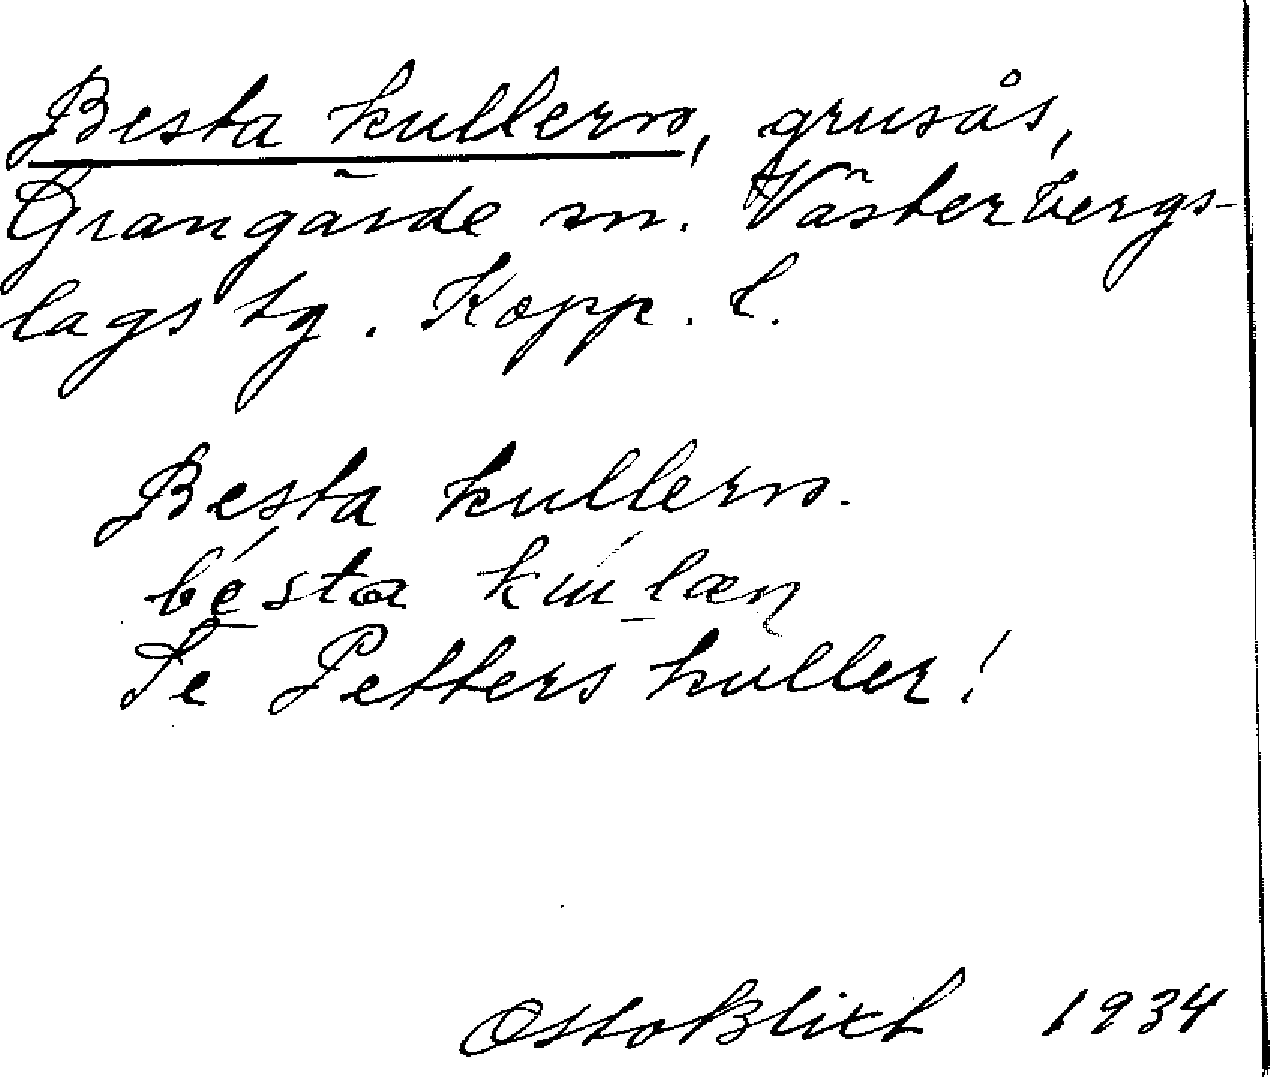 Besta kullern, grusås,
Grangärde sn. Västerbergs-
lags tg. Kopp. l.
Besta kullern.
Se Petters kuller!
Otto Blixt 1934